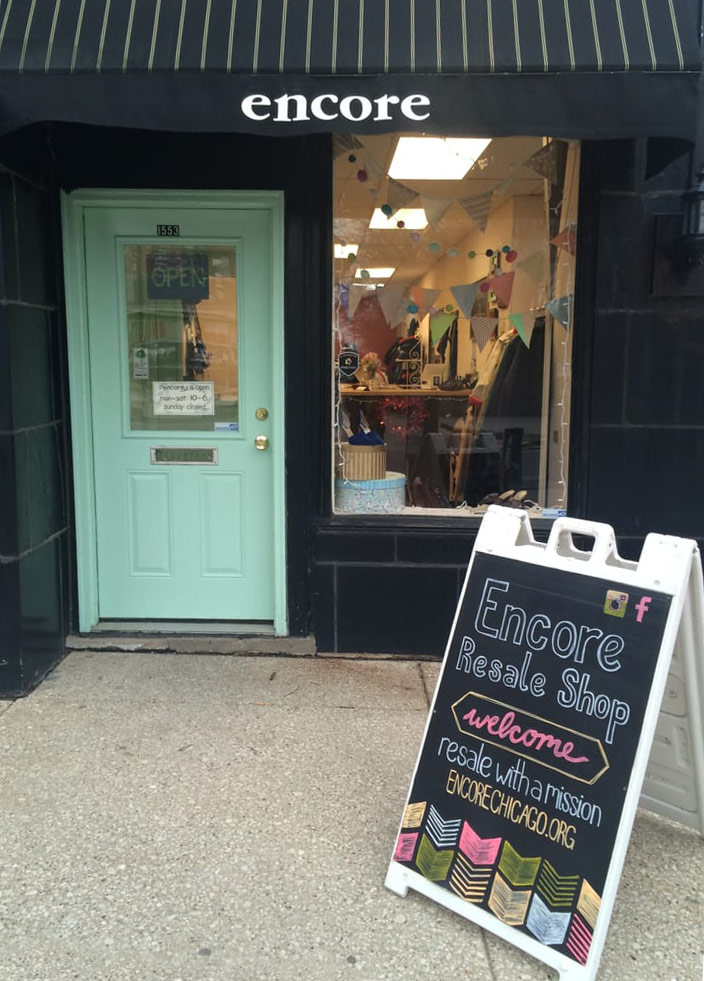 encore
1553
OPEN
encore is open
mon-sat: 10-6
sunday: closed
Encore
Resale Shop
welcome
resale with a mission
ENCORECHICAGO.ORG
f